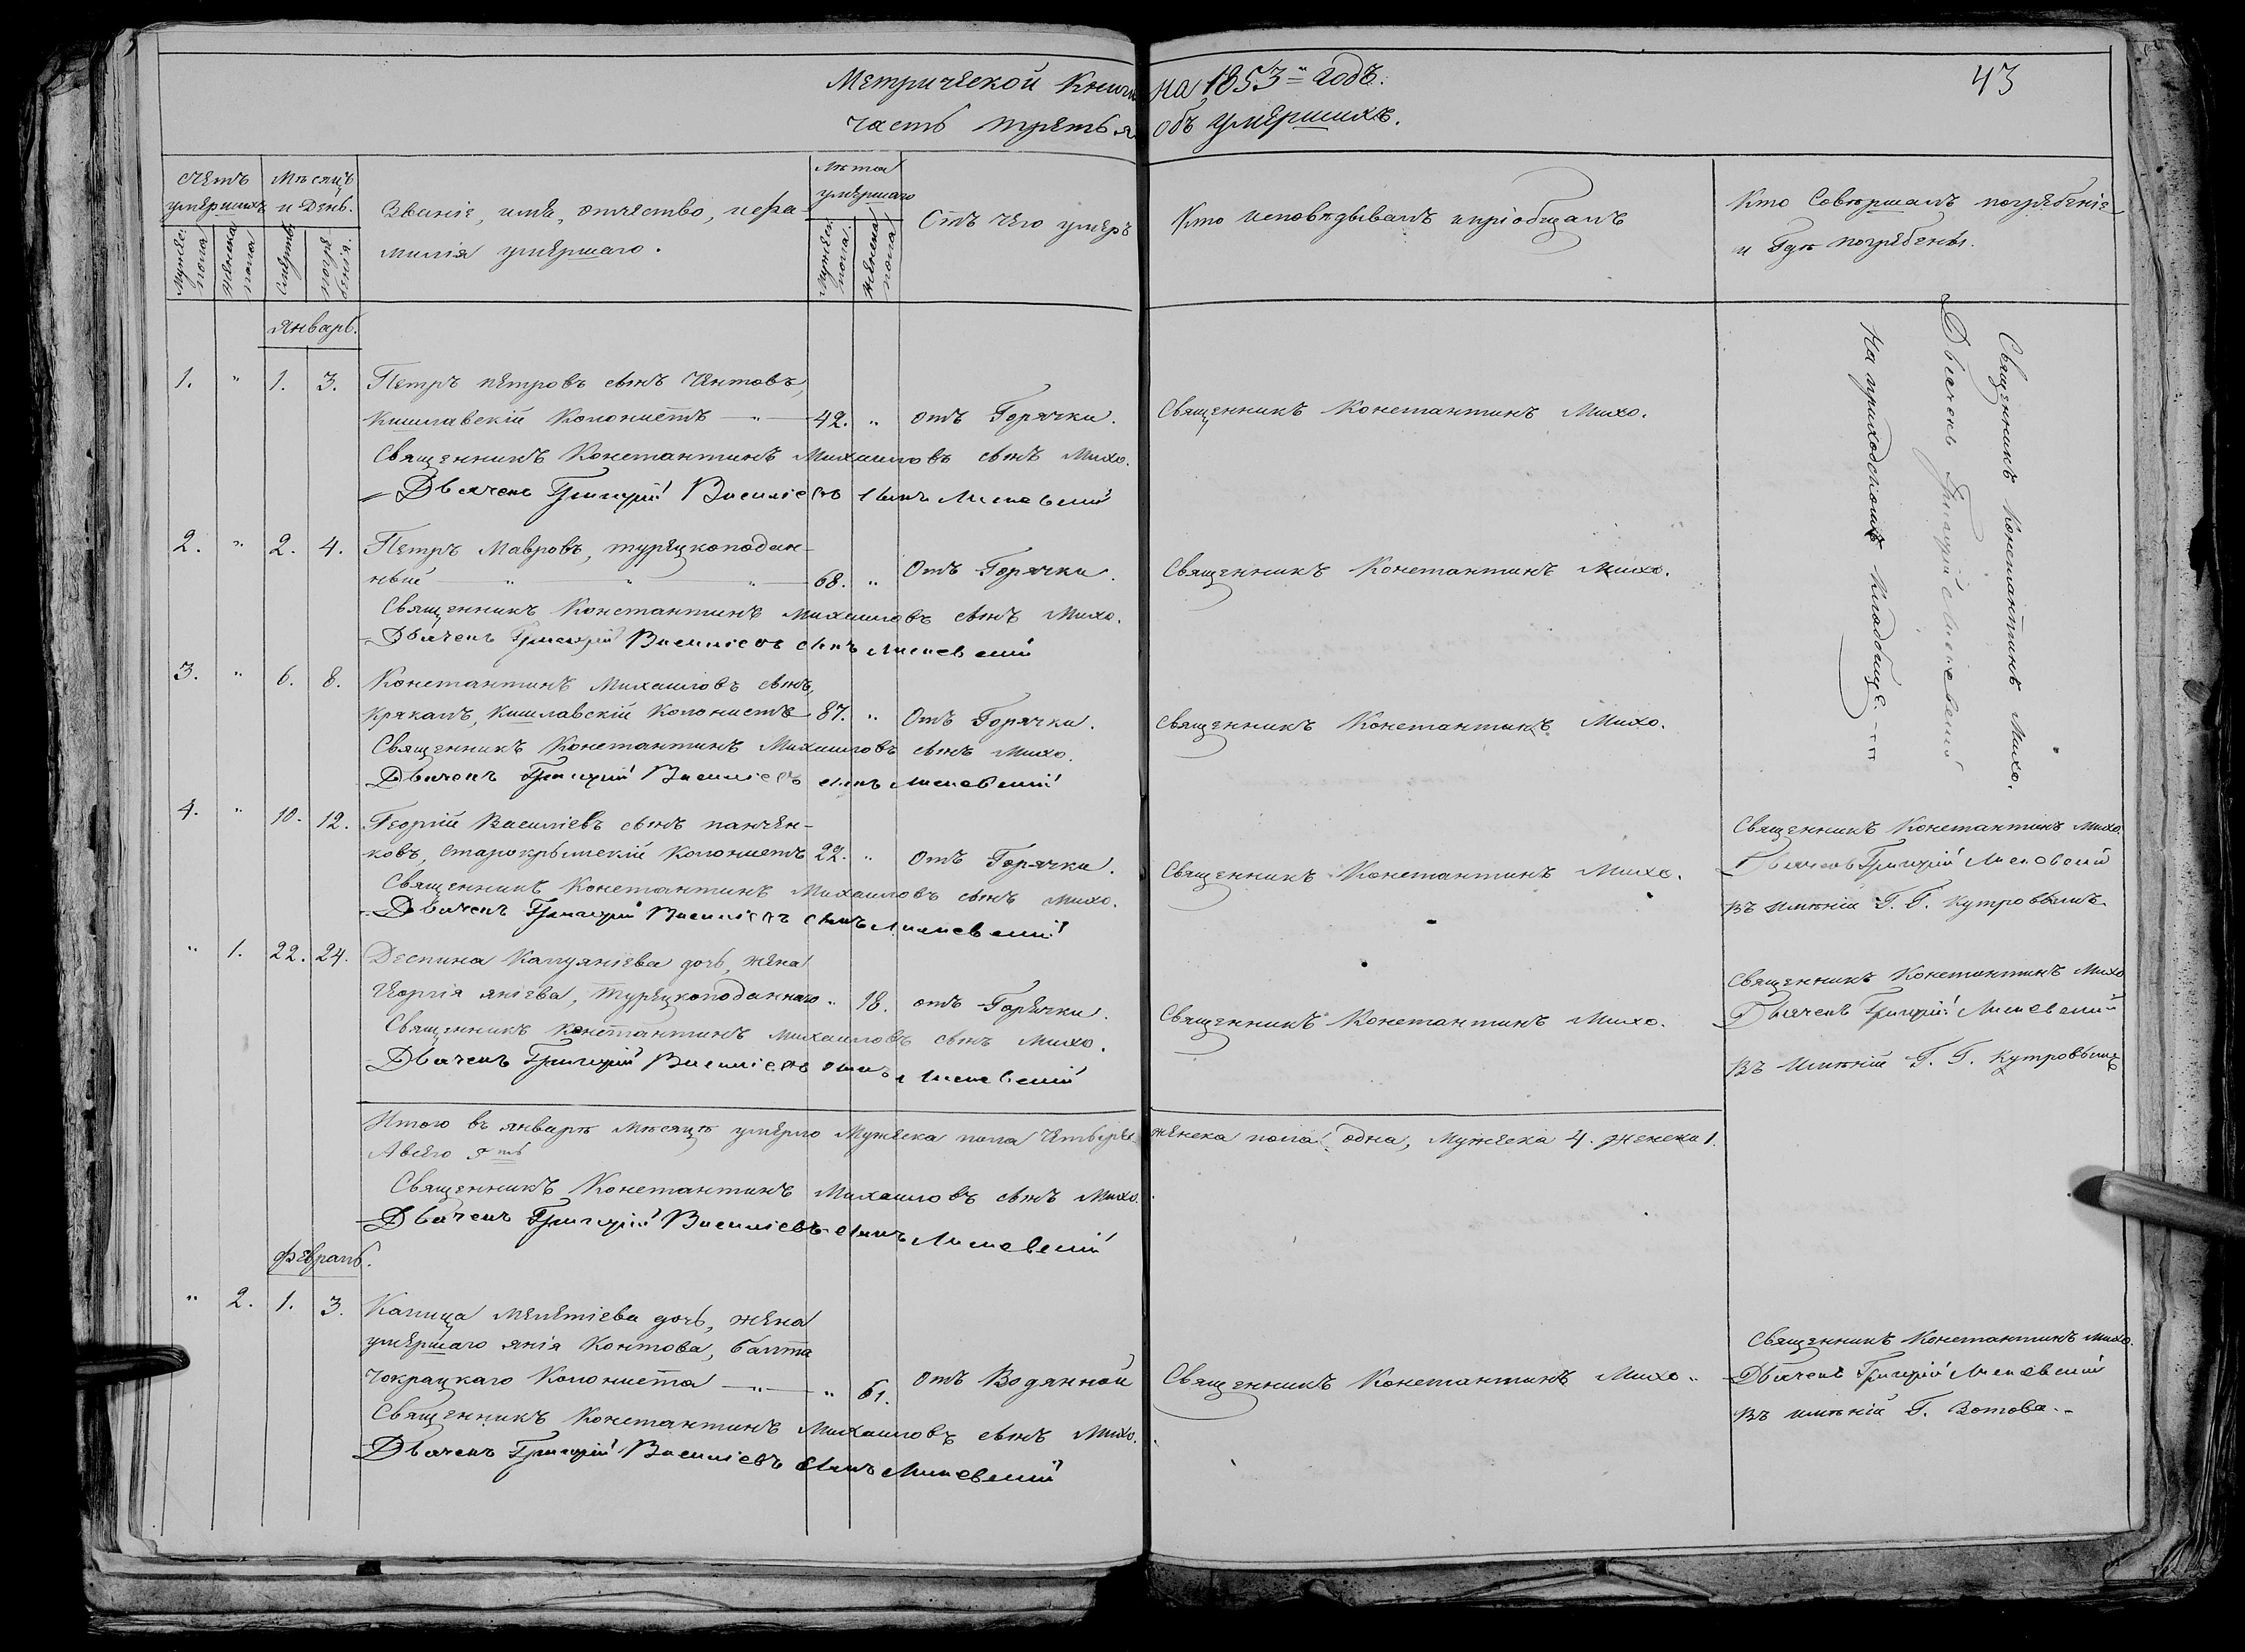 Метрической Книги на 1853-й годъ.
часть третья объ умершихъ.
43
Счетъ умершихъ
Мужес. пола
Женска пола
Мѣсяцъ и День.
Смерть.
погребенія.
Званіе, имя, отчество, и фа-
милія умершаго.
Лѣта умершаго
Мужеск. пола.
Женска пола
Отъ чего умеръ
Кто исповѣдывалъ и пріобщалъ
Кто Совершалъ погребеніе
и Гдѣ погребены.
Январь.
1. " 1. 3. Петръ петровъ сынъ Чентовъ,
Кишлавскій Колонистъ — " — 42. " отъ Горячки. Священникъ Константинъ Михо.
Священникъ Константинъ Михаиловъ сынъ Михо.
Дьячекъ Григорій Василіевъ сынъ Лисневскій
2. " 2. 4. Петръ Мавровъ, турецкоподан-
ный " " " 68. " Отъ Горячки. Священникъ Константинъ Михо.
Священникъ Константинъ Михаиловъ сынъ Михо.
Дьячекъ Григорій Василіевъ сынъ Лисневскій
3. " 6. 8. Константинъ Михаиловъ сынъ,
Крякалъ, Кишлавскій Колонистъ 87. " Отъ Горячки. Священникъ Константинъ Михо.
Священникъ Константинъ Михаиловъ сынъ Михо.
Дьячекъ Григорій Василіевъ сынъ Лисневскій
Священникъ Константинъ Михо.
Дьячекъ Григорій Лисневскій
На приходскомъ кладбище.
4. " 10. 12. Георгій Василіевъ сынъ панчен-
ковъ, старокрымскій Колонистъ 22. " отъ Горячки. Священникъ Константинъ Михо.
Священникъ Константинъ Михаиловъ сынъ Михо.
Дьячекъ Григорій Василіевъ сынъ Лисневскій
Священникъ Константинъ Михо.
Дьячекъ Григорій Лисневскій
Въ имѣніи Г. Г. Кутровымъ
" 1. 22. 24. Деспина Капуяніева дочь, жена
Георгія яніева, Турецкоподаннаго " 18. отъ Горячки. Священникъ Константинъ Михо.
Священникъ Константинъ Михаиловъ сынъ Михо.
Дьячекъ Григорій Василіевъ сынъ Лисневскій
Священникъ Константинъ Михо
Дьячекъ Григорій Лисневскій
Въ Имѣніи Г. Г. Кутровымъ
Итого въ январѣ мѣсяцѣ умерло Мужеска пола Четыре женска пола одна, Мужеска 4. женска 1.
А всего 5ть
Священникъ Константинъ Михаиловъ сынъ Михо.
Дьячекъ Григорій Василіевъ сынъ Лисневскій
Февраль.
" 2. 1. 3. Калица мелетіева дочь, жена
умершаго янія Контова, балта
Чокрацкаго Колониста — " — " 61. отъ Водянной Священникъ Константинъ Михо.
Священникъ Константинъ Михаиловъ сынъ Михо.
Дьячекъ Григорій Василіевъ сынъ Лисневскій
Священникъ Константинъ Михо.
Дьячекъ Григорій Лисневскій
Въ имѣніи Г. Вотова.